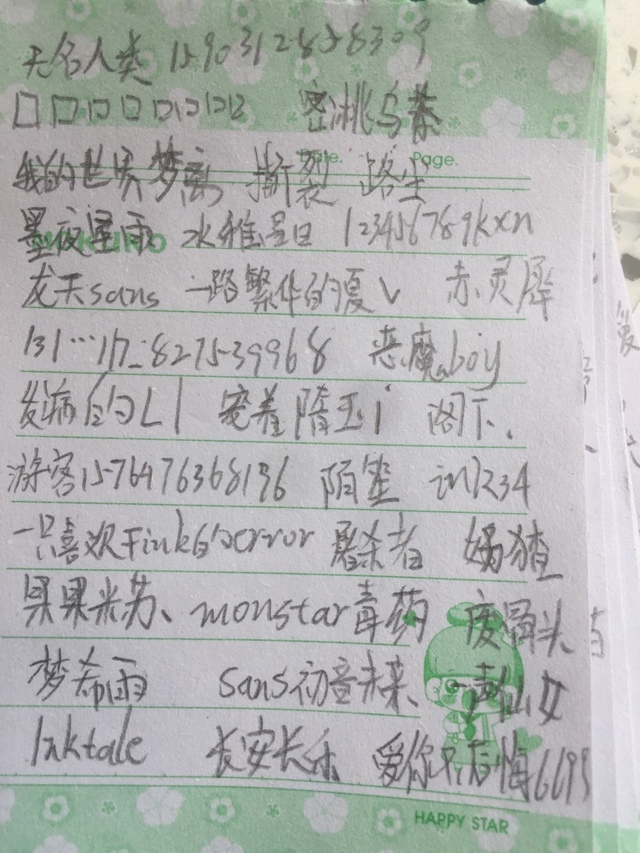 无名人类 1590312858309
□□□□□□□□ 密淋乌蓁
Date. Page.
我的世界梦离 撕裂 路尘
墨夜星雨 水雅星日 123456789kxn
龙天sans 一路繁华的夏√ 赤灵犀
131…117_827539968 恶魔boy
发病的L1 宠着隋玉i 阁下.
游客1576476368196 陌笙 in1234
一只喜欢干ink的error 屠杀者
果果米苏、monstar毒药 废冒头
梦希雨 sans初音未来、
Inktale 长安长乐 爱你只后悔6695
HAPPY STAR